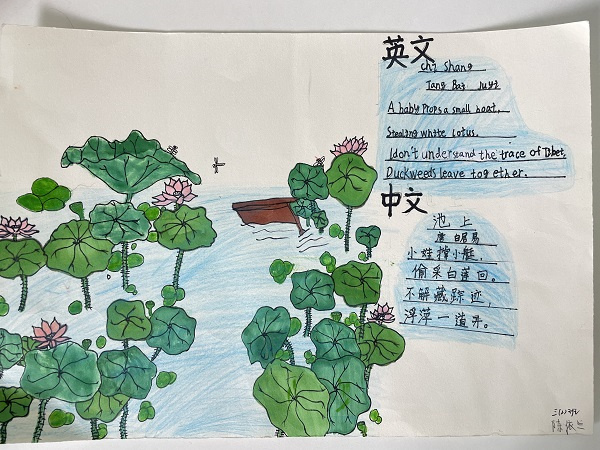 英文
chi Shang
Tang Bai Juyi
A baby Props a small boat,
Stealing white Lotus.
I don't understand the trace of Tibet,
Duckweeds leave together.
中文
池上
唐 白居易
小娃撑小艇,
偷采白莲回。
不解藏踪迹,
浮萍一道开。